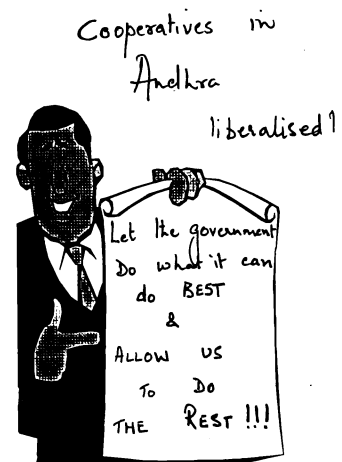 Cooperatives in
Andhra
liberalised?
Let the government
Do what it can
do BEST
&
ALLOW US
To Do
THE REST !!!